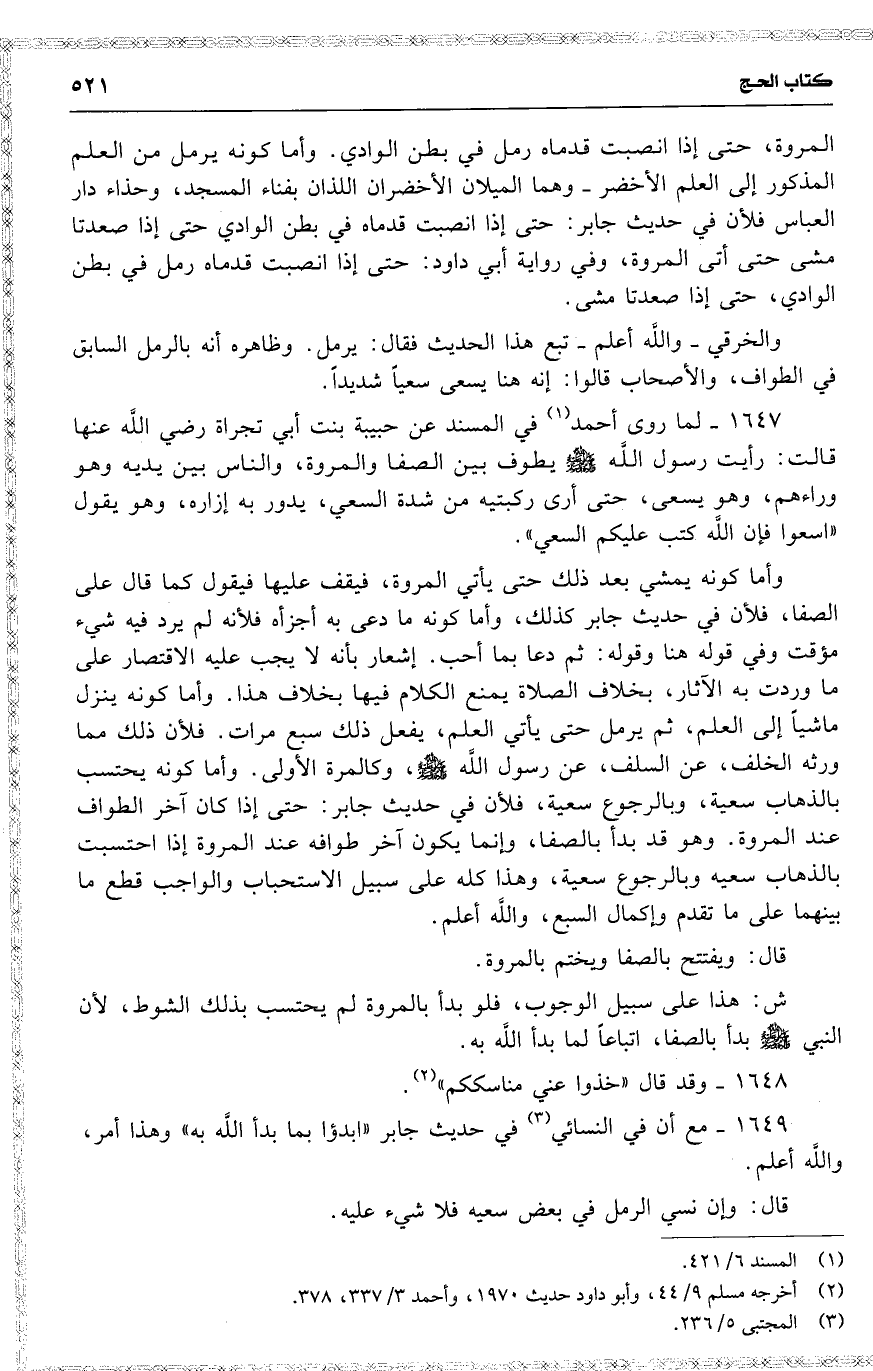 كتاب الحج ٥٢١
المروة، حتى إذا انصبت قدماه رمل في بطن الوادي. وأما كونه يرمل من العلم
المذكور إلى العلم الأخضر ـ وهما الميلان الأخضران اللذان بفناء المسجد، وحذاء دار
العباس فلأن في حديث جابر: حتى إذا انصبت قدماه في بطن الوادي حتى إذا صعدتا
مشى حتى أتى المروة، وفي رواية أبي داود: حتى إذا انصبت قدماه رمل في بطن
الوادي، حتى إذا صعدتا مشى.
والخرقي ـ والله أعلم ـ تبع هذا الحديث فقال: يرمل. وظاهره أنه بالرمل السابق
في الطواف، والأصحاب قالوا: إنه هنا يسعى سعياً شديداً.
١٦٤٧ ـ لما روى أحمد(١) في المسند عن حبيبة بنت أبي تجراة رضي الله عنها
قالت: رأيت رسول الله ﷺ يطوف بين الصفا والمروة، والناس بين يديه وهو
وراءهم، وهو يسعى، حتى أرى ركبتيه من شدة السعي، يدور به إزاره، وهو يقول
«اسعوا فإن الله كتب عليكم السعي».
وأما كونه يمشي بعد ذلك حتى يأتي المروة، فيقف عليها فيقول كما قال على
الصفا، فلأن في حديث جابر كذلك، وأما كونه ما دعى به أجزأه فلأنه لم يرد فيه شيء
مؤقت وفي قوله هنا وقوله: ثم دعا بما أحب. إشعار بأنه لا يجب عليه الاقتصار على
ما وردت به الآثار، بخلاف الصلاة يمنع الكلام فيها بخلاف هذا. وأما كونه ينزل
ماشياً إلى العلم، ثم يرمل حتى يأتي العلم، يفعل ذلك سبع مرات. فلأن ذلك مما
ورثه الخلف، عن السلف، عن رسول الله ﷺ، وكالمرة الأولى. وأما كونه يحتسب
بالذهاب سعية، وبالرجوع سعية، فلأن في حديث جابر: حتى إذا كان آخر الطواف
عند المروة. وهو قد بدأ بالصفا، وإنما يكون آخر طوافه عند المروة إذا احتسبت
بالذهاب سعيه وبالرجوع سعية، وهذا كله على سبيل الاستحباب والواجب قطع ما
بينهما على ما تقدم وإكمال السبع، والله أعلم.
قال: ويفتتح بالصفا ويختم بالمروة.
ش: هذا على سبيل الوجوب، فلو بدأ بالمروة لم يحتسب بذلك الشوط، لأن
النبي ﷺ بدأ بالصفا، اتباعاً لما بدأ الله به.
١٦٤٨ ـ وقد قال «خذوا عني مناسككم»(٢).
١٦٤٩ ـ مع أن في النسائي(٣) في حديث جابر «ابدؤا بما بدأ الله به» وهذا أمر،
والله أعلم.
قال: وإن نسي الرمل في بعض سعيه فلا شيء عليه.
(١) المسند ٤٢١/٦.
(٢) أخرجه مسلم ٤٤/٩، وأبو داود حديث ١٩٧٠، وأحمد ٣٣٧/٣، ٣٧٨.
(٣) المجتبى ٢٣٦/٥.